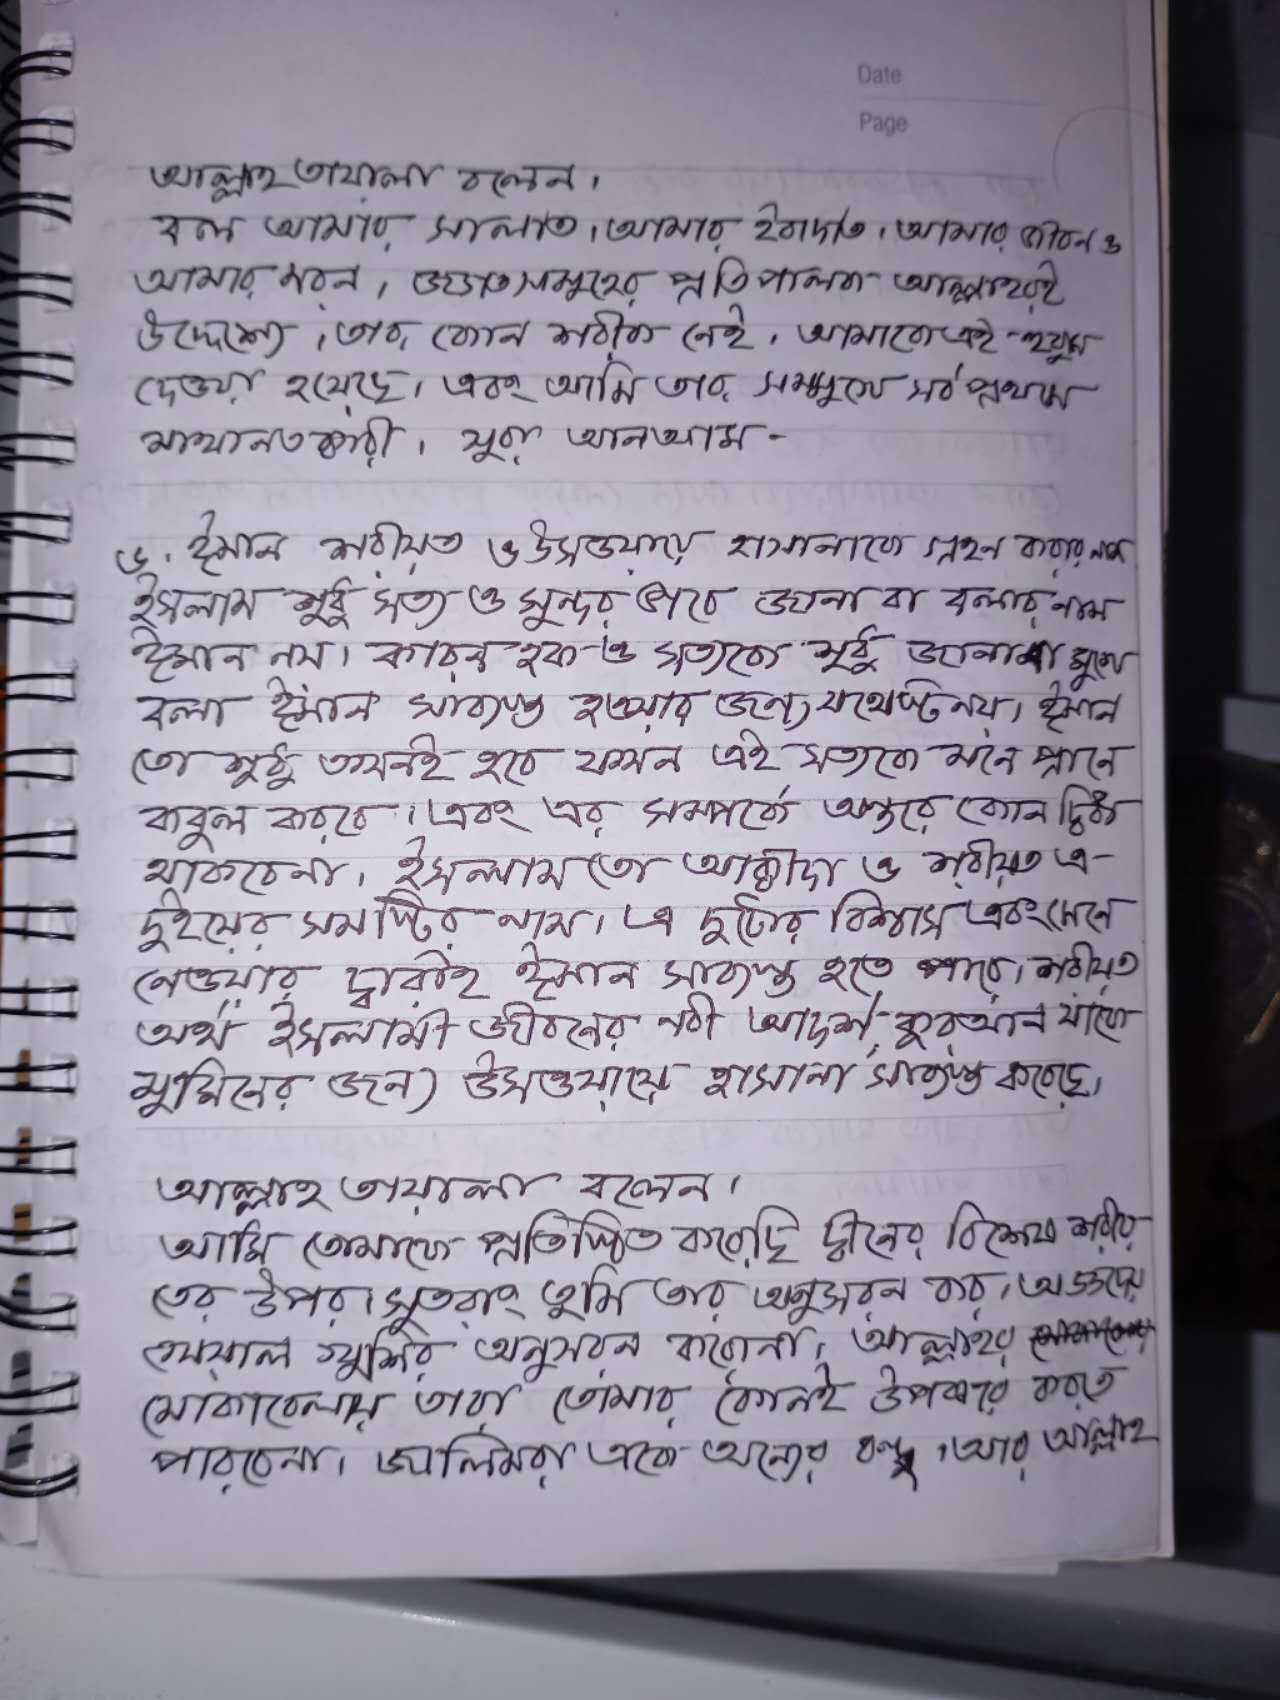 Date
Page
আল্লাহ তাযালা বলেন।
বল আমার সালাত, আমার ইবাদত, আমার জীবন ও
আমার মরন, জগতসমুহের প্রতিপালক আল্লাহরই
উদ্দেশ্যে, তার কোন শরীক নেই, আমাকে এই হুকুম
দেওয়া হয়েছে, এবং আমি তার সম্মুখে সর্ব প্রথমে
মাথানতকারী, সুরা আনআম -
৬. ঈমান শরীয়ত ও উসওয়ায়ে হাসানাকে গ্রহন করার নাম
ইসলাম শুধু সত্য ও সুন্দর ভাবে জানা বা বলার নাম
ঈমান নয়। কারন হক ও সত্যকে শুধু জানা বা মুখে
বলা ঈমান সাব্যস্ত হওয়ার জন্য যথেস্ট নয়, ঈমান
তো শুধু তখনই হবে যখন এই সত্যকে মনে প্রানে
কবুল করবে, এবং এর সমপর্কে অন্তরে কোন দ্বিধা
থাকবেনা, ইসলাম তো আক্বীদা ও শরীয়ত এ-
দুইয়ের সমস্টির নাম, এ দুটোর বিশ্বাস এবং মেনে
নেওয়ার দ্বারাই ঈমান সাব্যস্ত হতে পারে, শরীয়ত
অর্থ ইসলামী জীবনের নবী আদর্শ, কুরআন যাকে
মুমিনের জন্য উসওয়ায়ে হাসানা সাব্যস্ত করেছে,
আল্লাহ তায়ালা বলেন।
আমি তোমাকে প্রতিষ্ঠিত করেছি দ্বীনের বিশেষ শরীয়
তের উপর, সুতরাং তুমি তার অনুসরন কর, অজ্ঞদের
খেয়াল খুশির অনুসরন করোনা, আল্লাহর
মোকাবেলায় তারা তোমার কোনই উপকার করতে
পারবেনা, জালিমরা একে অন্যের বন্ধু, আর আল্লাহ